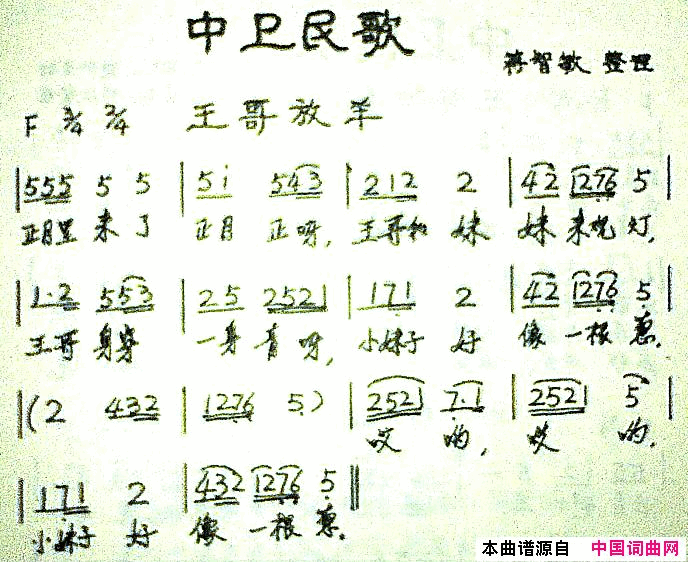 中卫民歌
蒋智敏 整理
F 3/4 2/4 王哥放羊
|555 5 5 |5i 543 |212 2 |42 1276 5 |
正月里 来 了 正月 正呀, 王哥和 妹 妹 来观 灯,
|1·2 553 |25 2521 |171 2 |42 1276 5 |
王哥 身穿 一身 青呀, 小妹子 好 像 一根 葱.
|(2 432 |1276 5) |2521 7·1 |2521 5 |
哎 哟, 哎 哟.
|171 2 |432 1276 5 ‖
小妹子 好 像 一根 葱.
本曲谱源自 中国词曲网